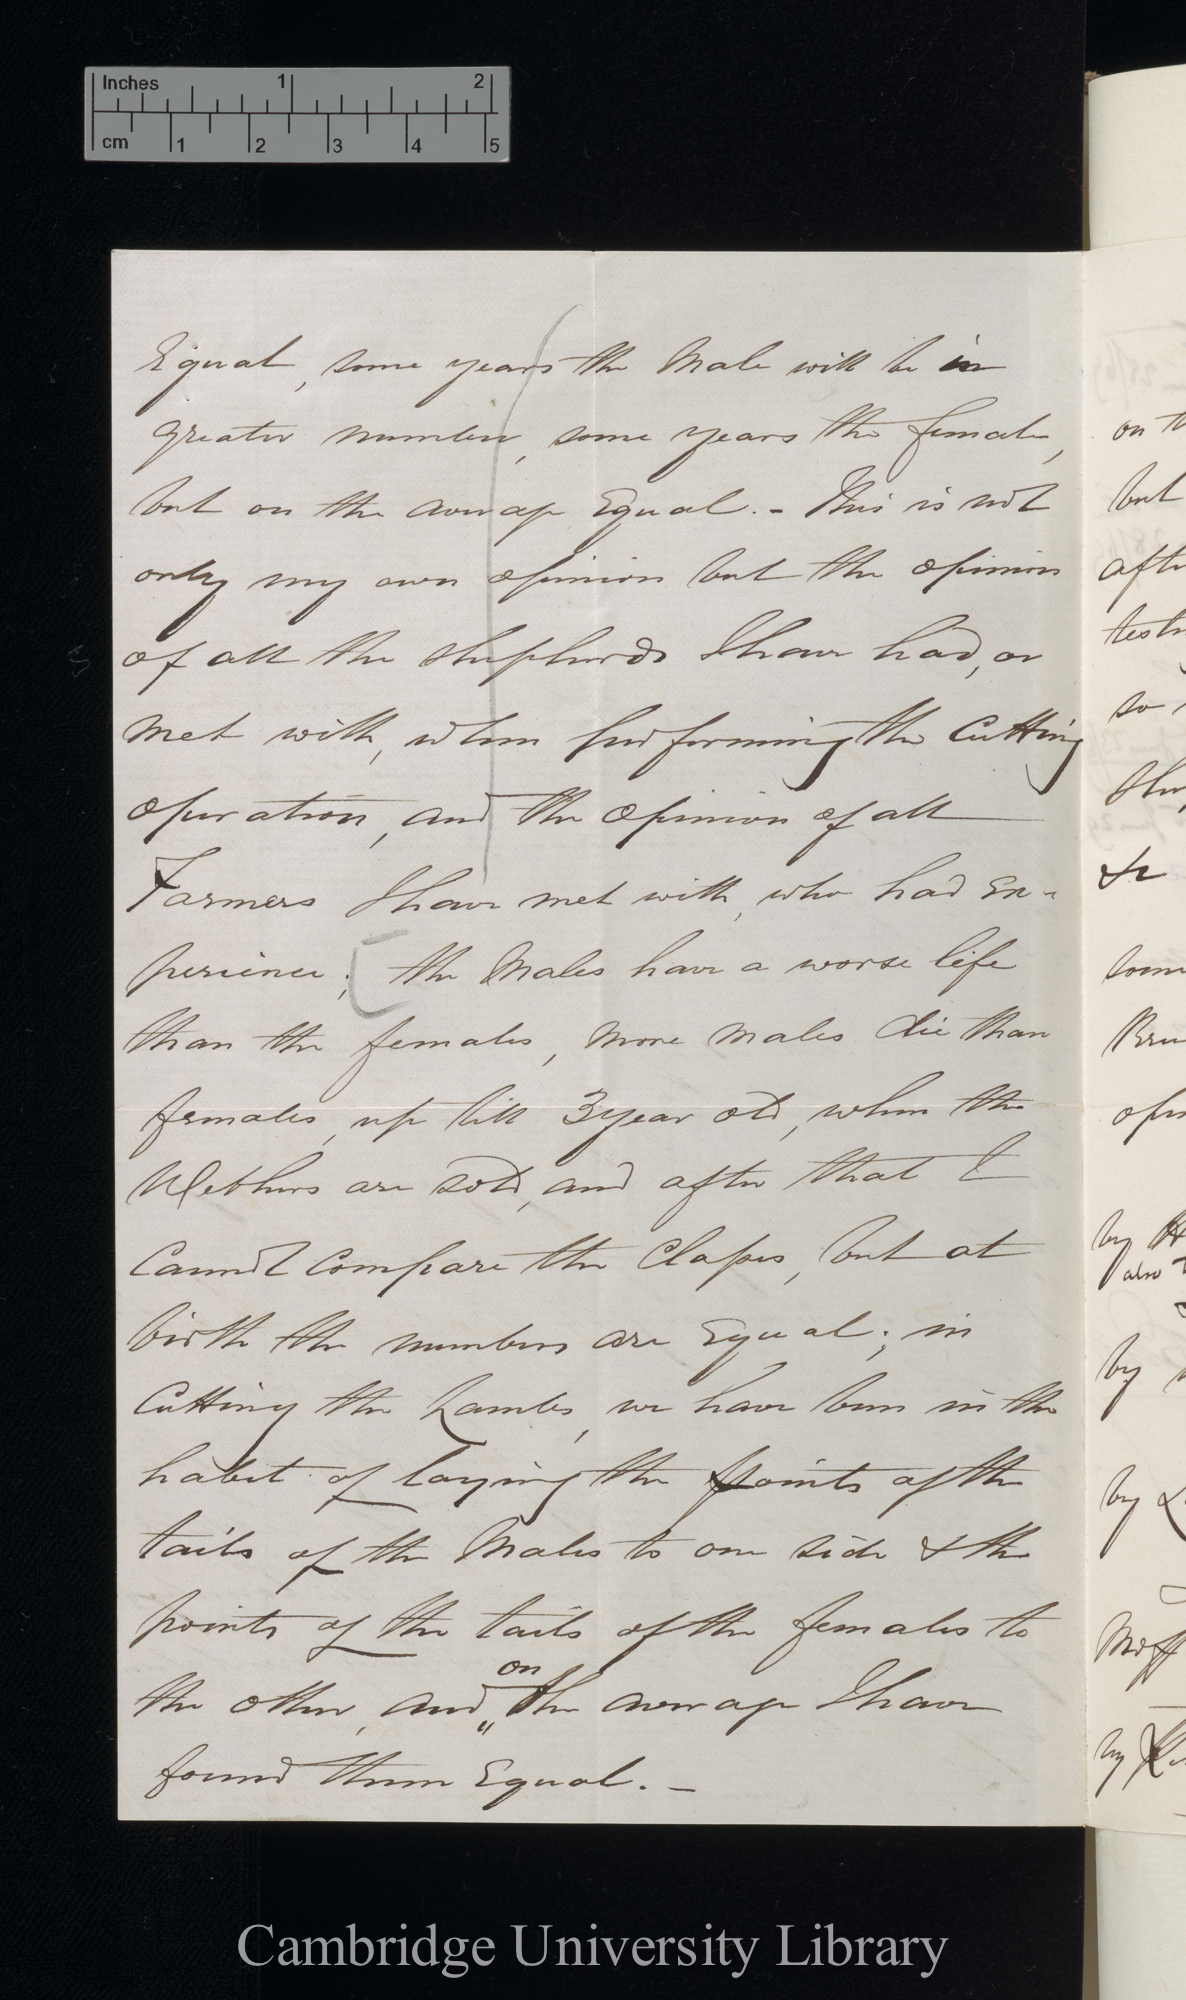 Inches 1 2
cm 1 2 3 4 5
Equal, some years the Male will be in
greater number, some years the female,
but on the average Equal. - This is not
only my own opinion but the opinion
of all the shepherds I have had, or
met with, when performing the Cutting
operation, and the opinion of all
Farmers I have met with, who had Ex-
perience; [the Males have a worse life
than the females, more males die than
females, up till 3 year old, when the
Wethers are sold, and after that I
Cannot Compare the Classes, but at
birth the numbers are Equal; in
Cutting the Lambs, we have been in the
habit of laying the points of the
tails of the Males to one side & the
points of the tails of the females to
on
the other, and the average I have
found them Equal. -
on
but
so
&c
by
also
by
by
by
Cambridge University Library